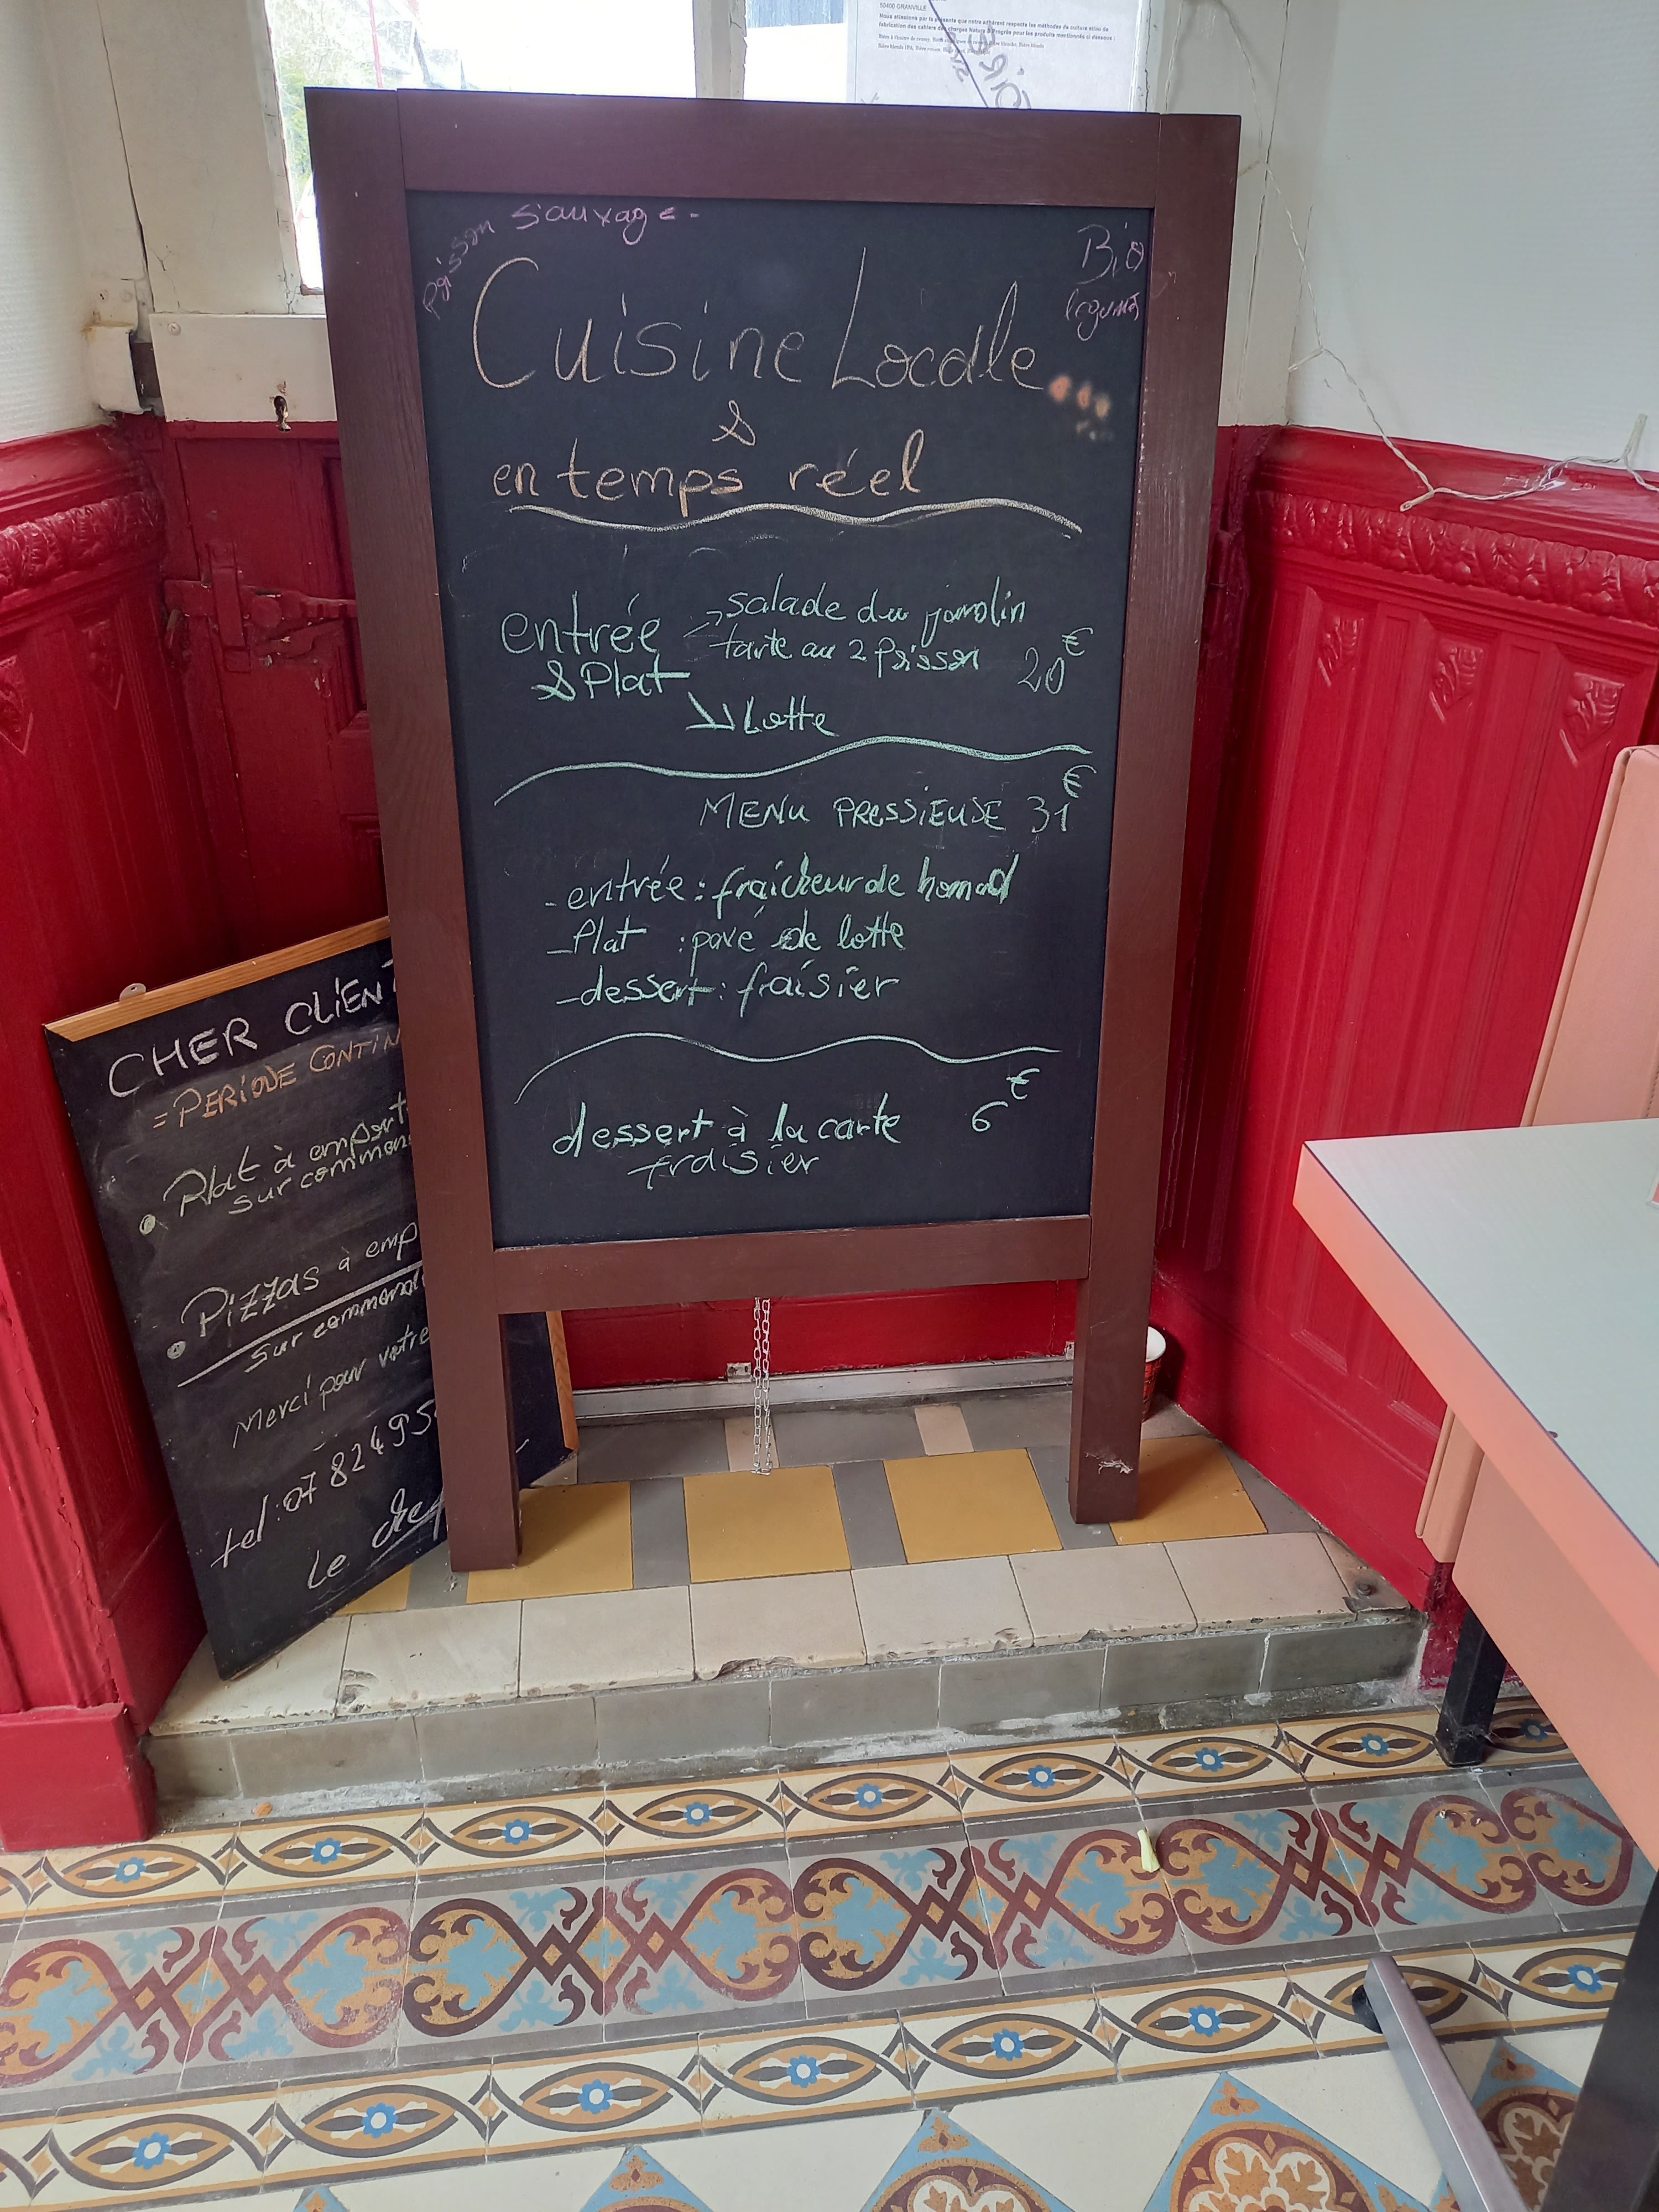 50400 GRANVILLE
Nous attestons par la présente que notre adhérent respecte les méthodes de culture et/ou de
fabrication des cahiers des charges Nature & Progrès pour les produits mentionnés ci dessous :
Poisson sauvage -
Bio
legumes
Cuisine Locale...
&
en temps réel
entrée
salade du jardin
tarte au 2 poisson
20€
& Plat
Lotte
MENU PRESSIEUSE 31€
- entrée : fraicheur de homard
- Plat : pavé de lotte
- dessert : fraisier
dessert à la carte 6€
fraisier
CHER CLIENT
= PERIODE CONTIN
Plat à emport
sur comman
Pizzas à emp
sur command
Merci pour votre
tel : 07 82 49 5
Le chef